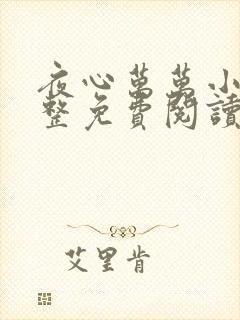 夜心萬萬小
整免費閱讀
艾里肯